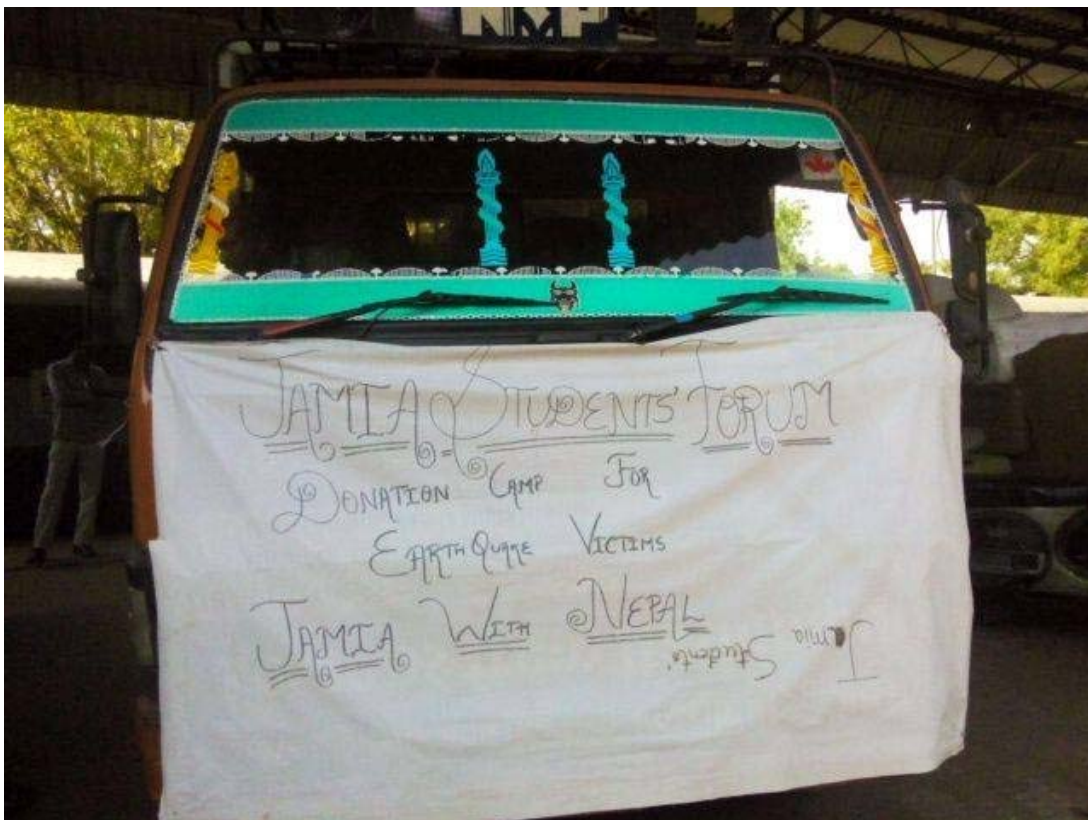 NMP
JAMIA STUDENTS' FORUM
DONATION CAMP FOR
EARTHQUAKE VICTIMS
JAMIA WITH NEPAL
Jamia
Students'